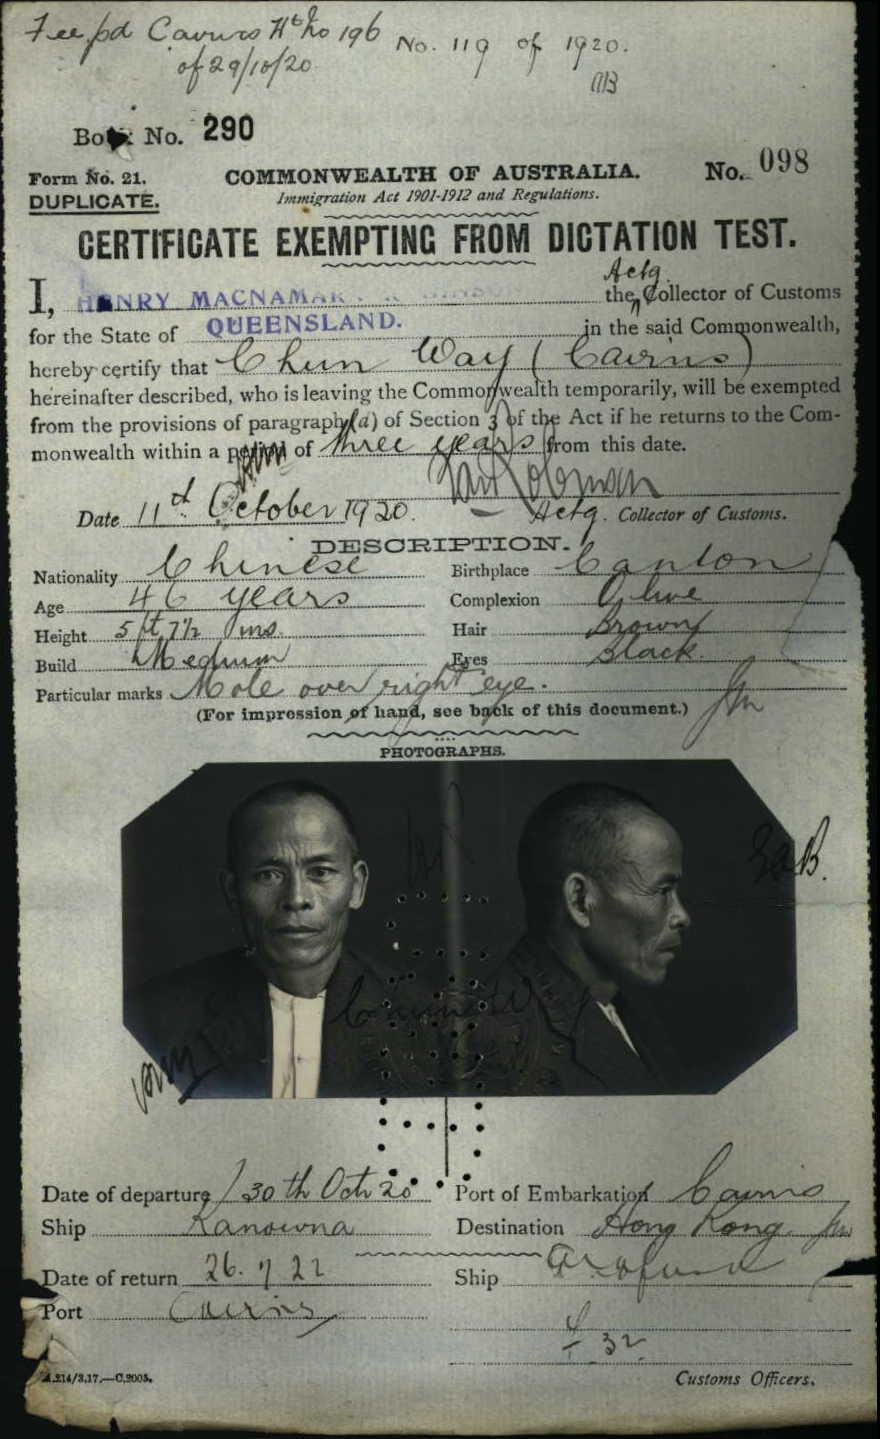 Fee pd Cairns No 196
of 29/10/20
No. 119 of 1920.
Book No. 290
Form No. 21.
COMMONWEALTH OF AUSTRALIA.
No. 098
DUPLICATE.
Immigration Act 1901-1912 and Regulations.
CERTIFICATE EXEMPTING FROM DICTATION TEST.
Actg.
I, HENRY MACNAMARA the Collector of Customs
for the State of QUEENSLAND. in the said Commonwealth,
hereby certify that Chun Way (Cairns)
hereinafter described, who is leaving the Commonwealth temporarily, will be exempted
from the provisions of paragraph (a) of Section 3 of the Act if he returns to the Com-
monwealth within a period of three years from this date.
Date 11th October 1920. Actg. Collector of Customs.
DESCRIPTION.
Nationality Chinese
Birthplace Canton
Age 46 years
Complexion Olive
Height 5 ft 7½ ins.
Hair Brown
Build Medium
Eyes Black.
Particular marks Mole over right eye.
(For impression of hand, see back of this document.)
PHOTOGRAPHS.
Chun Way
Date of departure 30th Oct 20
Port of Embarkation Cairns
Ship Kanowna
Destination Hong Kong.
Date of return 26.7 22
Ship
Port Cairns
32
A.214/3.17.—C.2005.
Customs Officers.